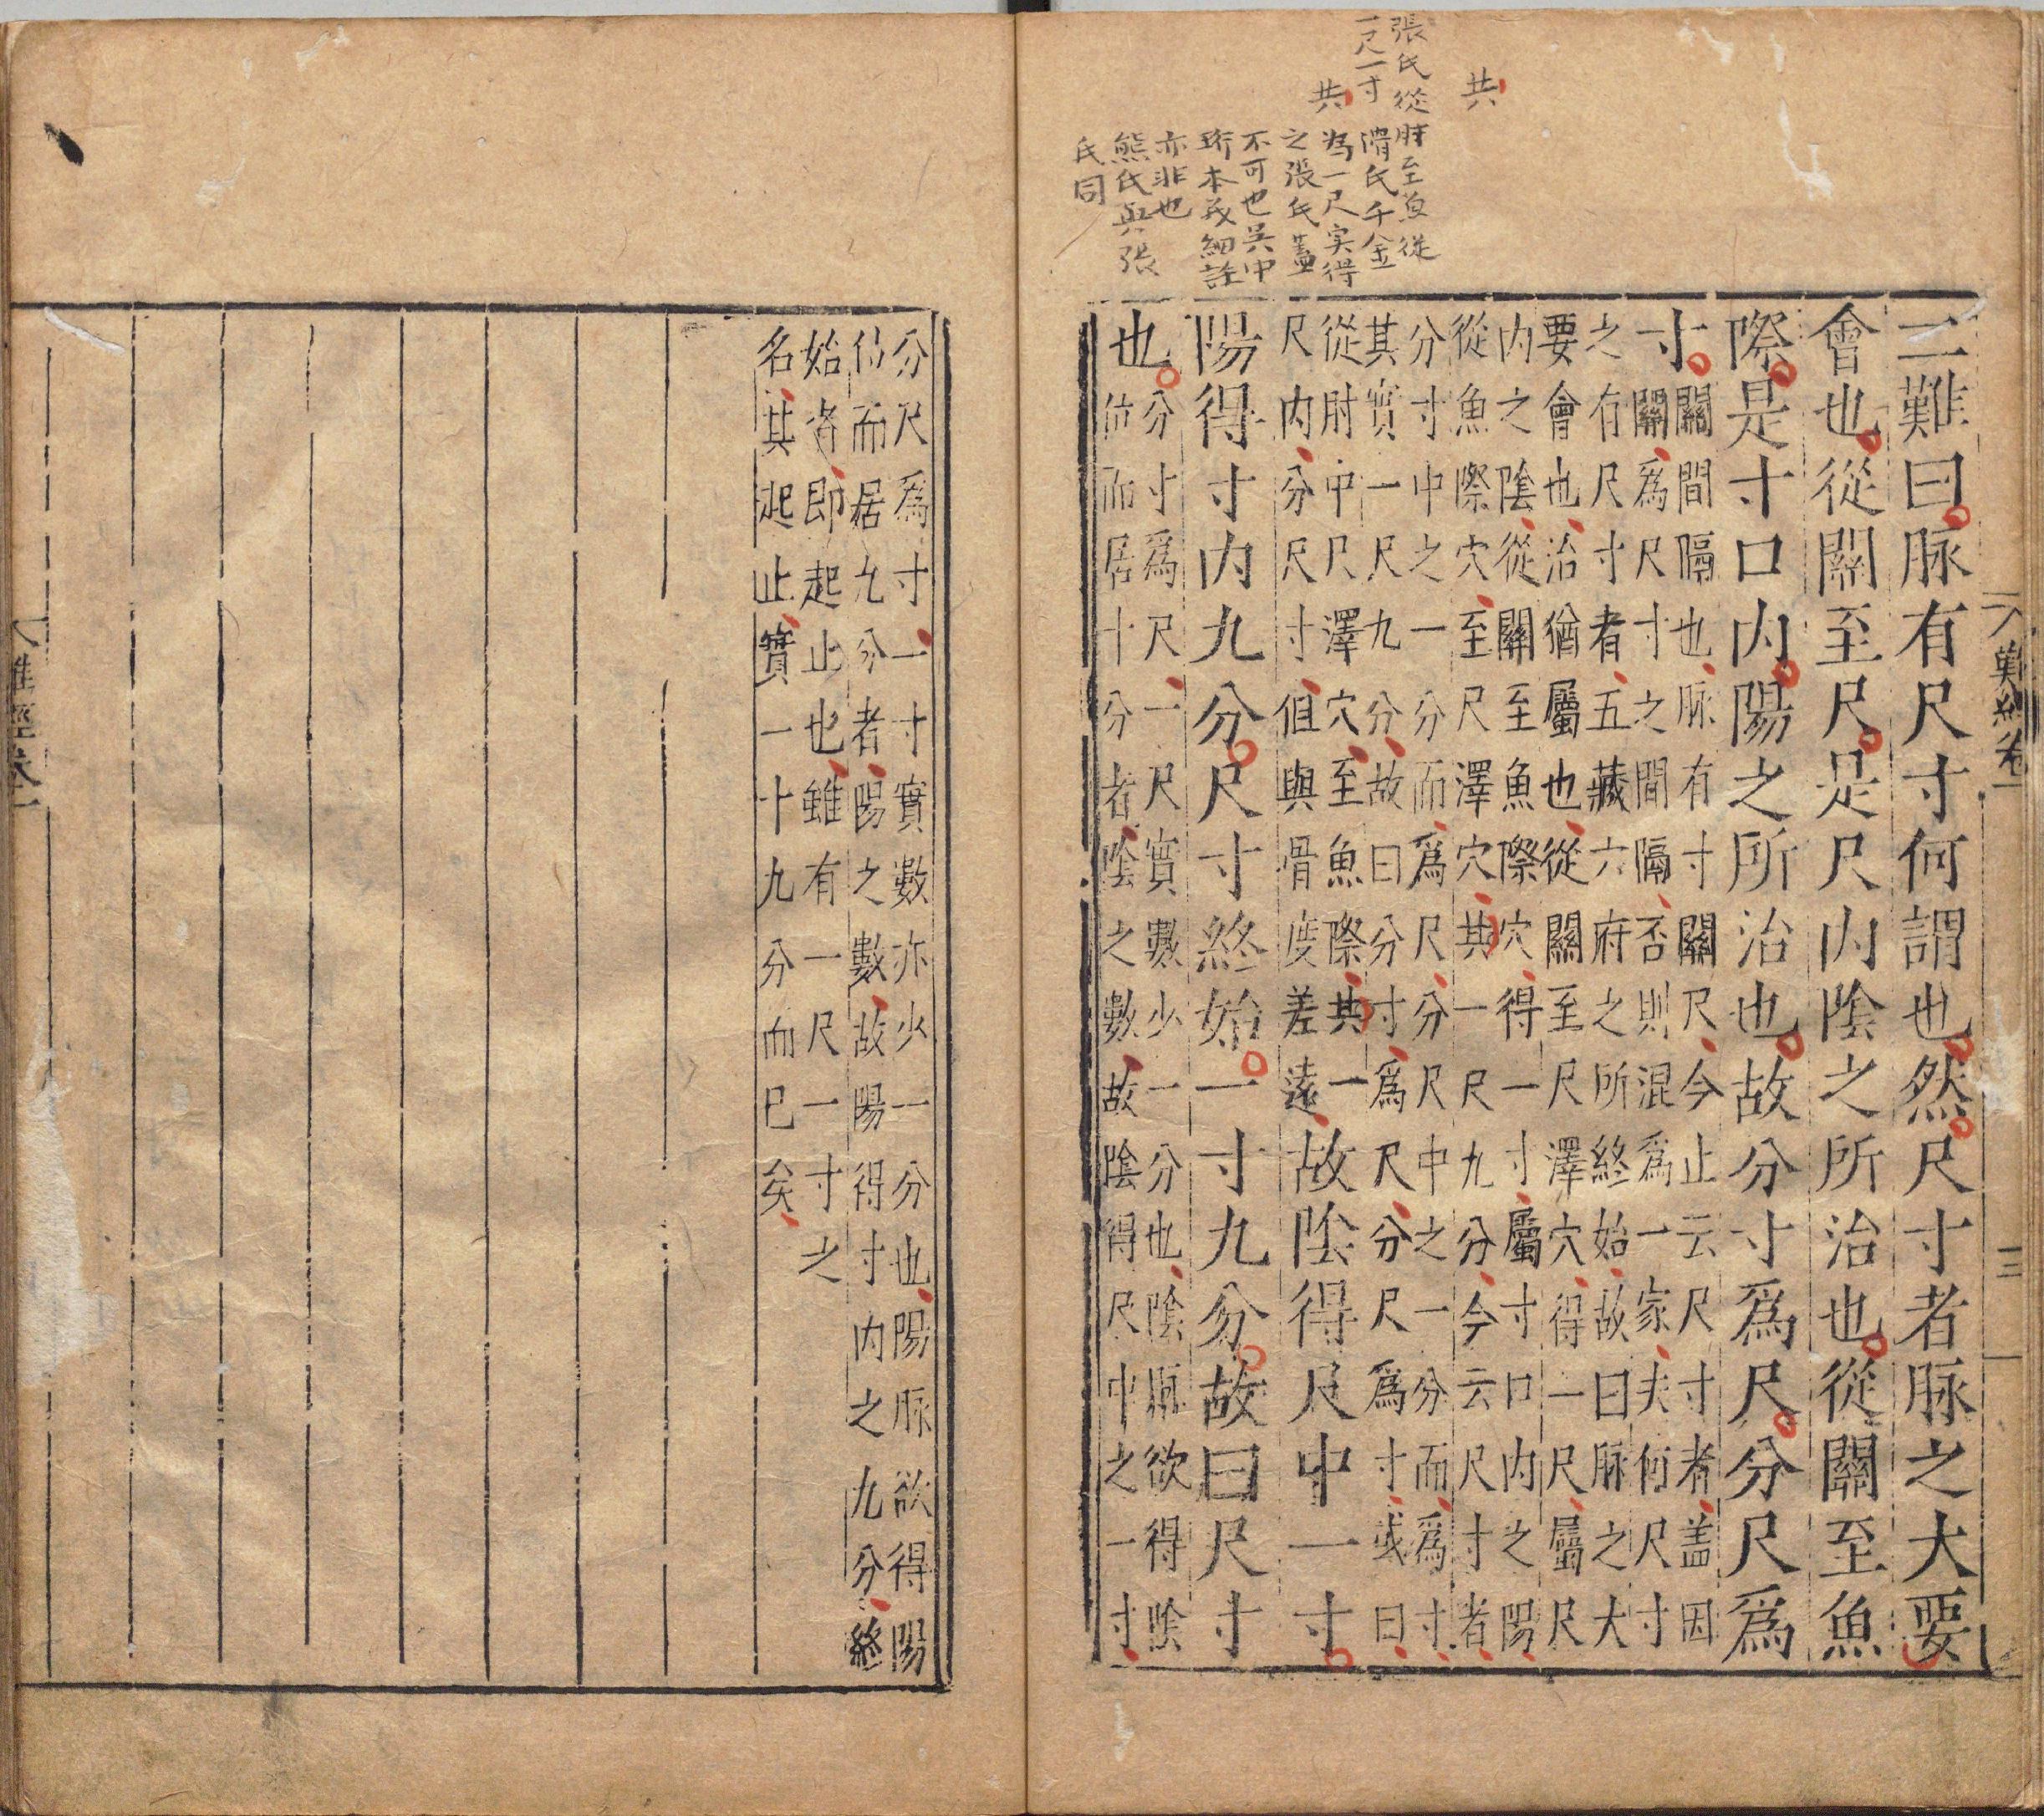 難經卷一 三
共
張氏從肘至魚從
一尺一寸 氏千金
共 為一尺実得
之張氏蓋
不可也吴中
珩本義細註
亦非也
熊氏與張
氏同
二難曰脉有尺寸何謂也然尺寸者脉之大要
會也從關至尺是尺内陰之所治也從關至魚
際是寸口内陽之所治也故分寸爲尺分尺爲
寸
關間隔也脉有寸關尺今止云尺寸者盖因
關爲尺寸之間隔否則混爲一家夫何尺寸
之有尺寸者五藏六府之所終始故曰脉之大
要會也治猶屬也從關至尺澤穴得一尺屬尺
内之陰從關至魚際穴得一寸屬寸口内之陽
從魚際穴至尺澤穴共一尺九分今云尺寸者
分寸中之一分而爲尺分尺中之一分而爲寸
其實一尺九分故曰分寸爲尺分尺爲寸或曰
從肘中尺澤穴至魚際共一
尺内分尺寸但與骨度差遠
故陰得尺中一寸
陽得寸内九分尺寸終始一寸九分故曰尺寸
也
分寸爲尺一尺實數少一分也陰脉欲得陰
位而居十分者陰之數故陰得尺中之一寸
分尺爲寸一寸實數亦少一分也陽脉欲得陽
位而居九分者陽之數故陽得寸内之九分終
始者即起止也雖有一尺一寸之
名其起止實一十九分而已矣
難經卷一